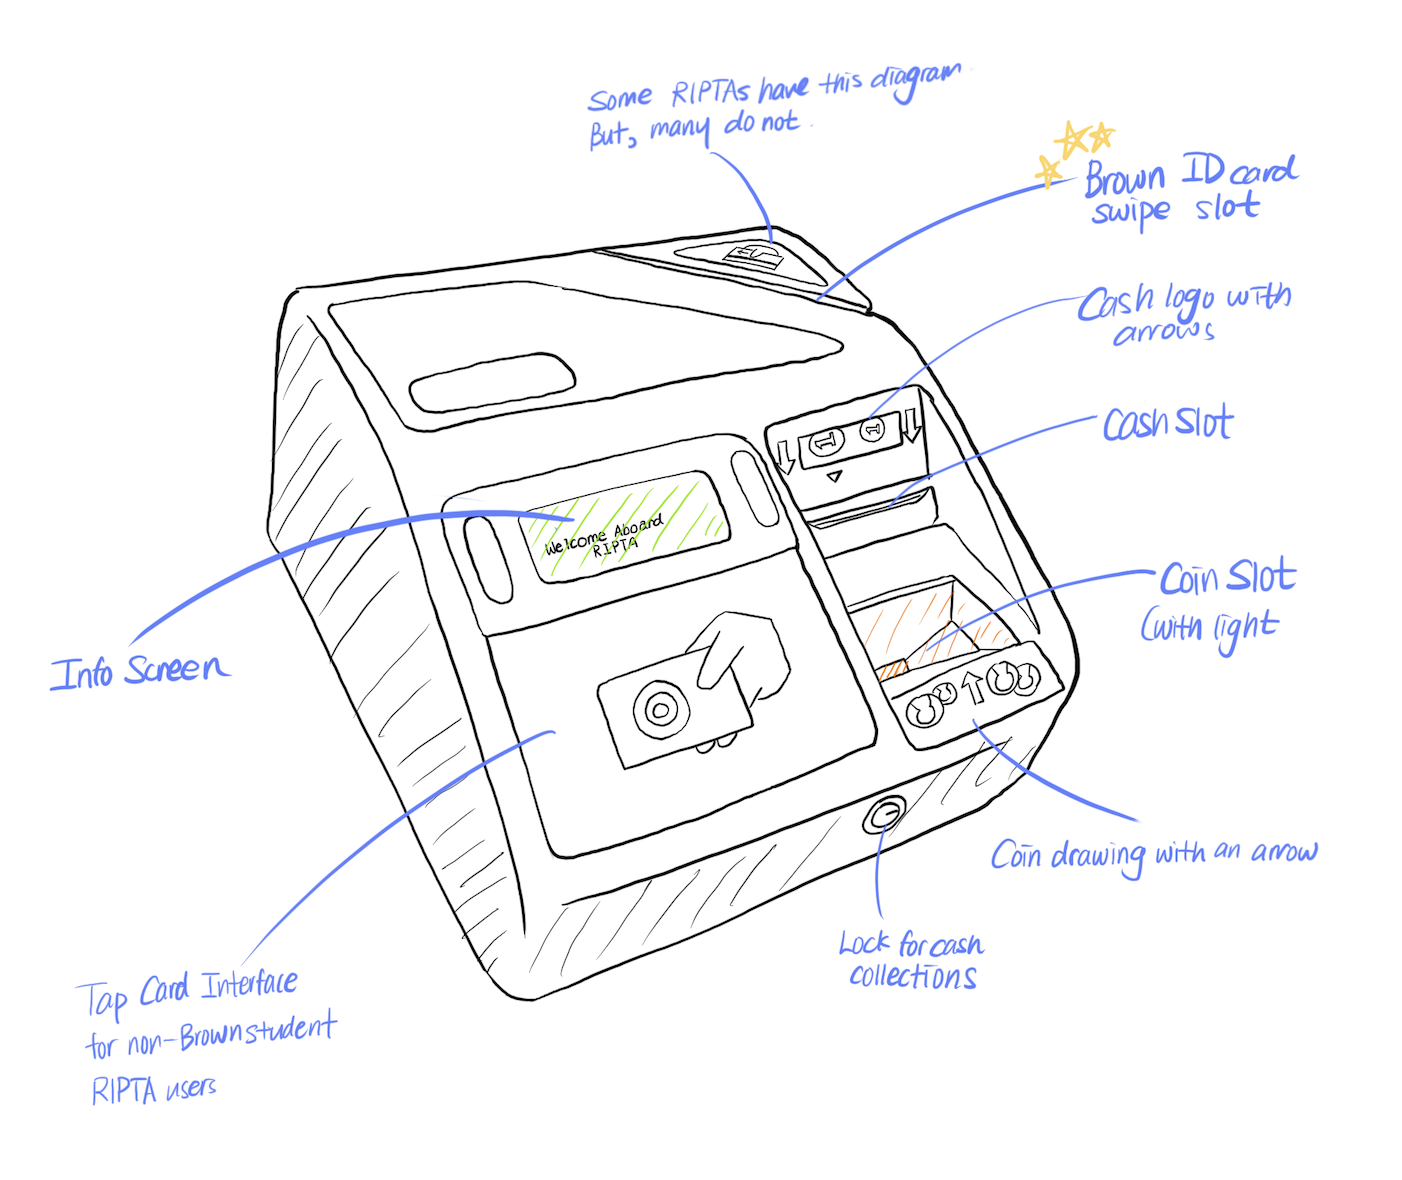 Some RIPTAs have this diagram.
But, many do not.
Brown ID card
swipe slot
Cash logo with
arrows
Cash Slot
Welcome Aboard
RIPTA
Coin Slot
(with light
Info Screen
Coin drawing with an arrow
Lock for cash
collections
Tap Card Interface
for non-Brown student
RIPTA users